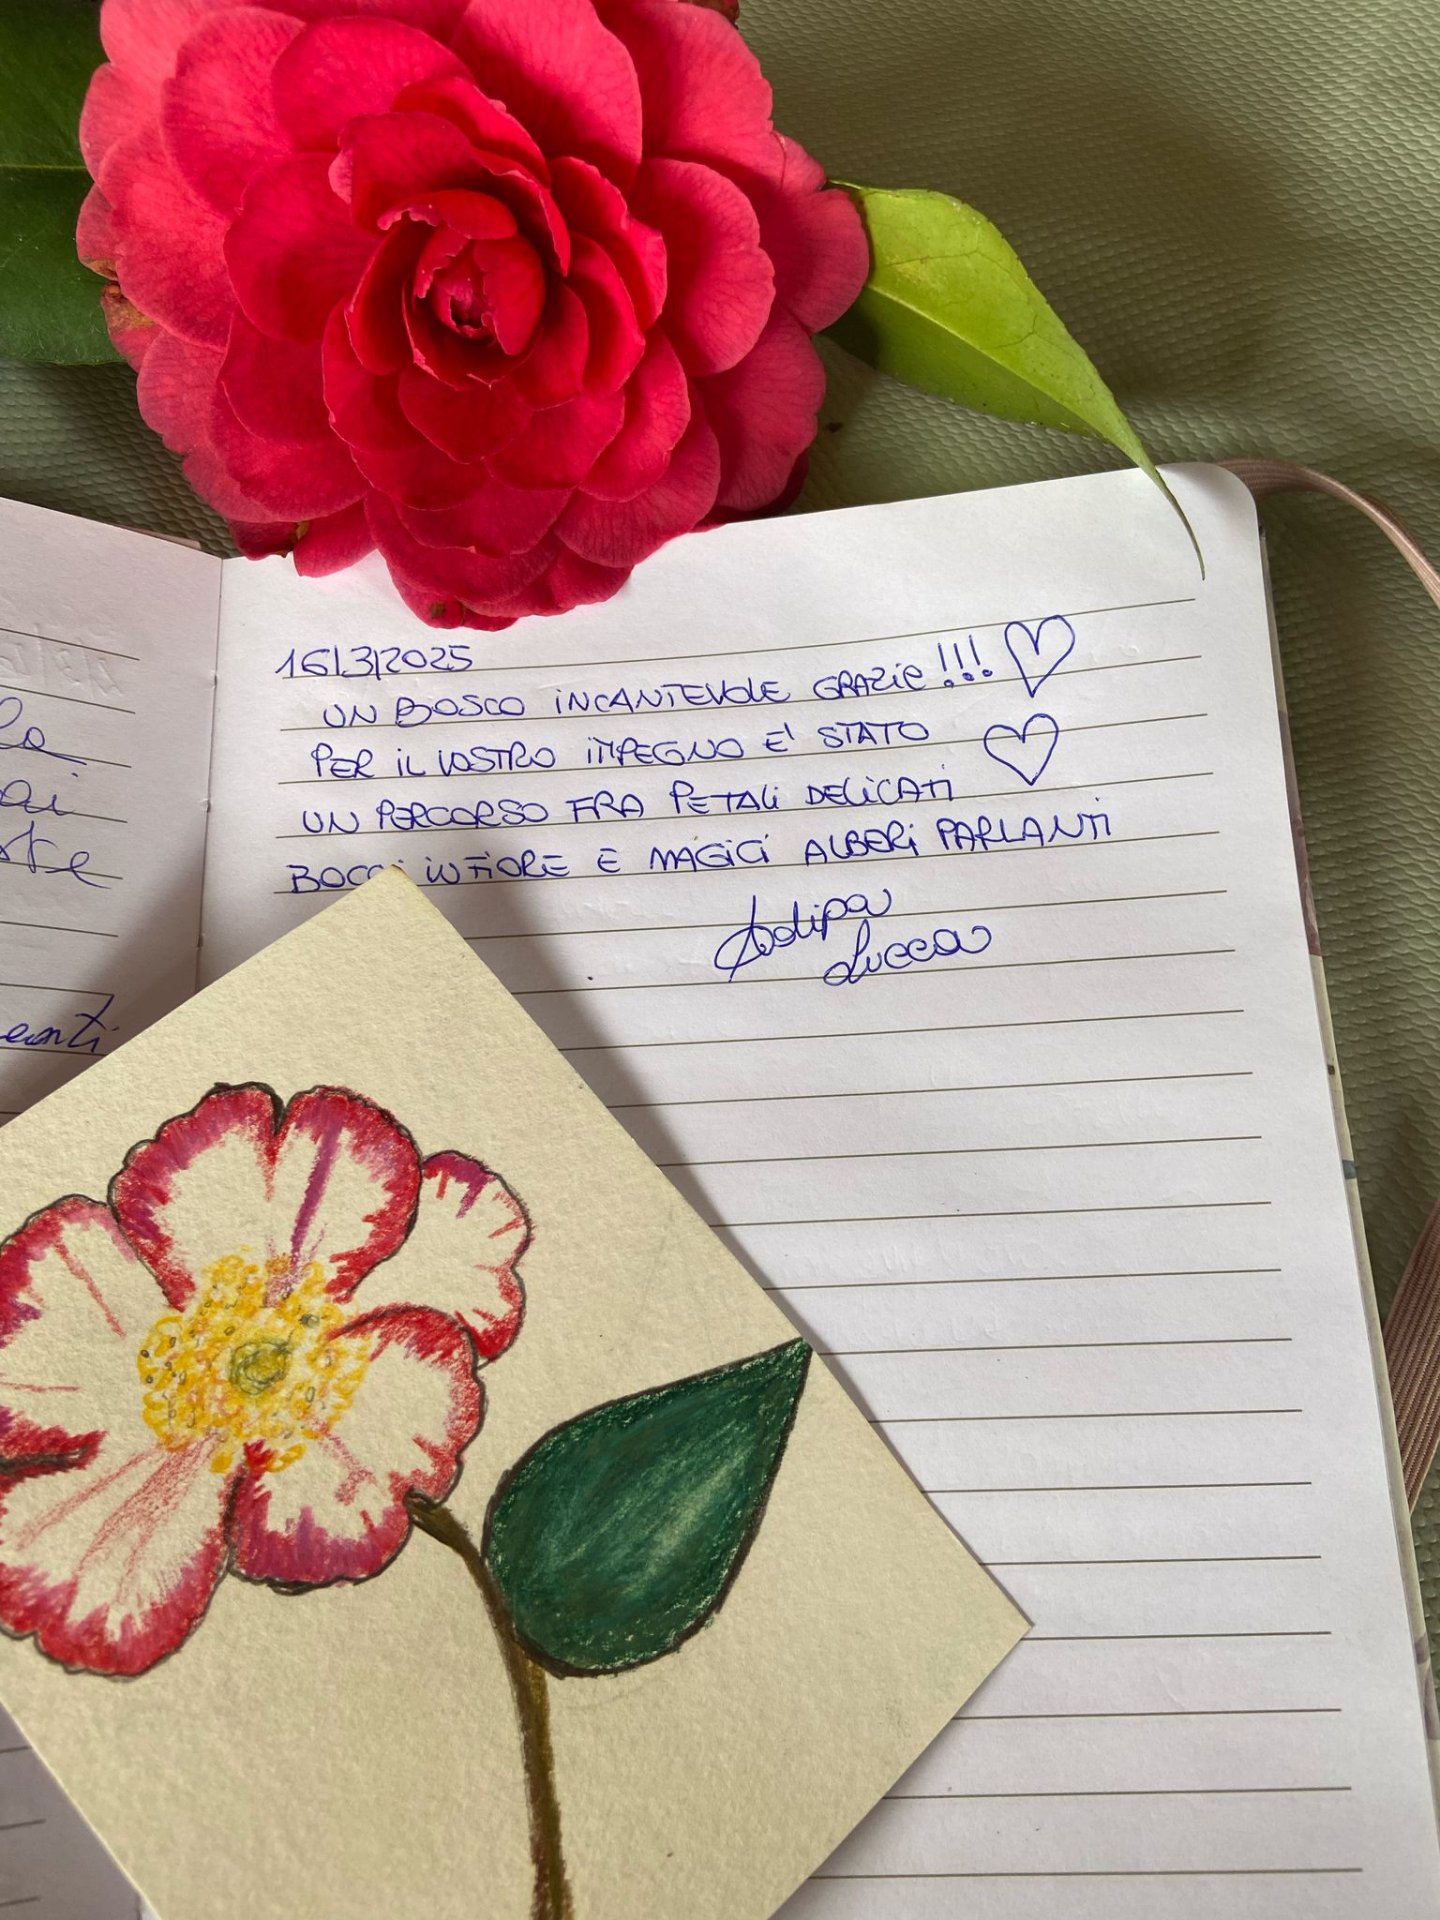 la
ai
ste
enti
16/3/2025
UN BOSCO INCANTEVOLE GRAZIE!!! ♡
PER IL VOSTRO IMPEGNO E' STATO
UN PERCORSO FRA PETALI DELICATI ♡
BOCCI IN FIORE E MAGICI ALBERI PARLANTI
Lucca